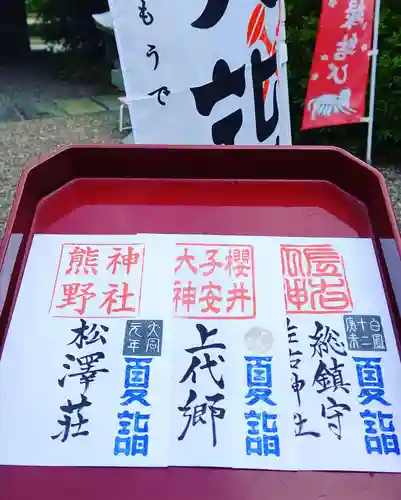 もうで
花
結び
熊野
神社
大同
元年
松澤荘
夏詣
櫻井
子安
大神
上代郷
夏詣
白鳳
十二
総鎮守
夏詣